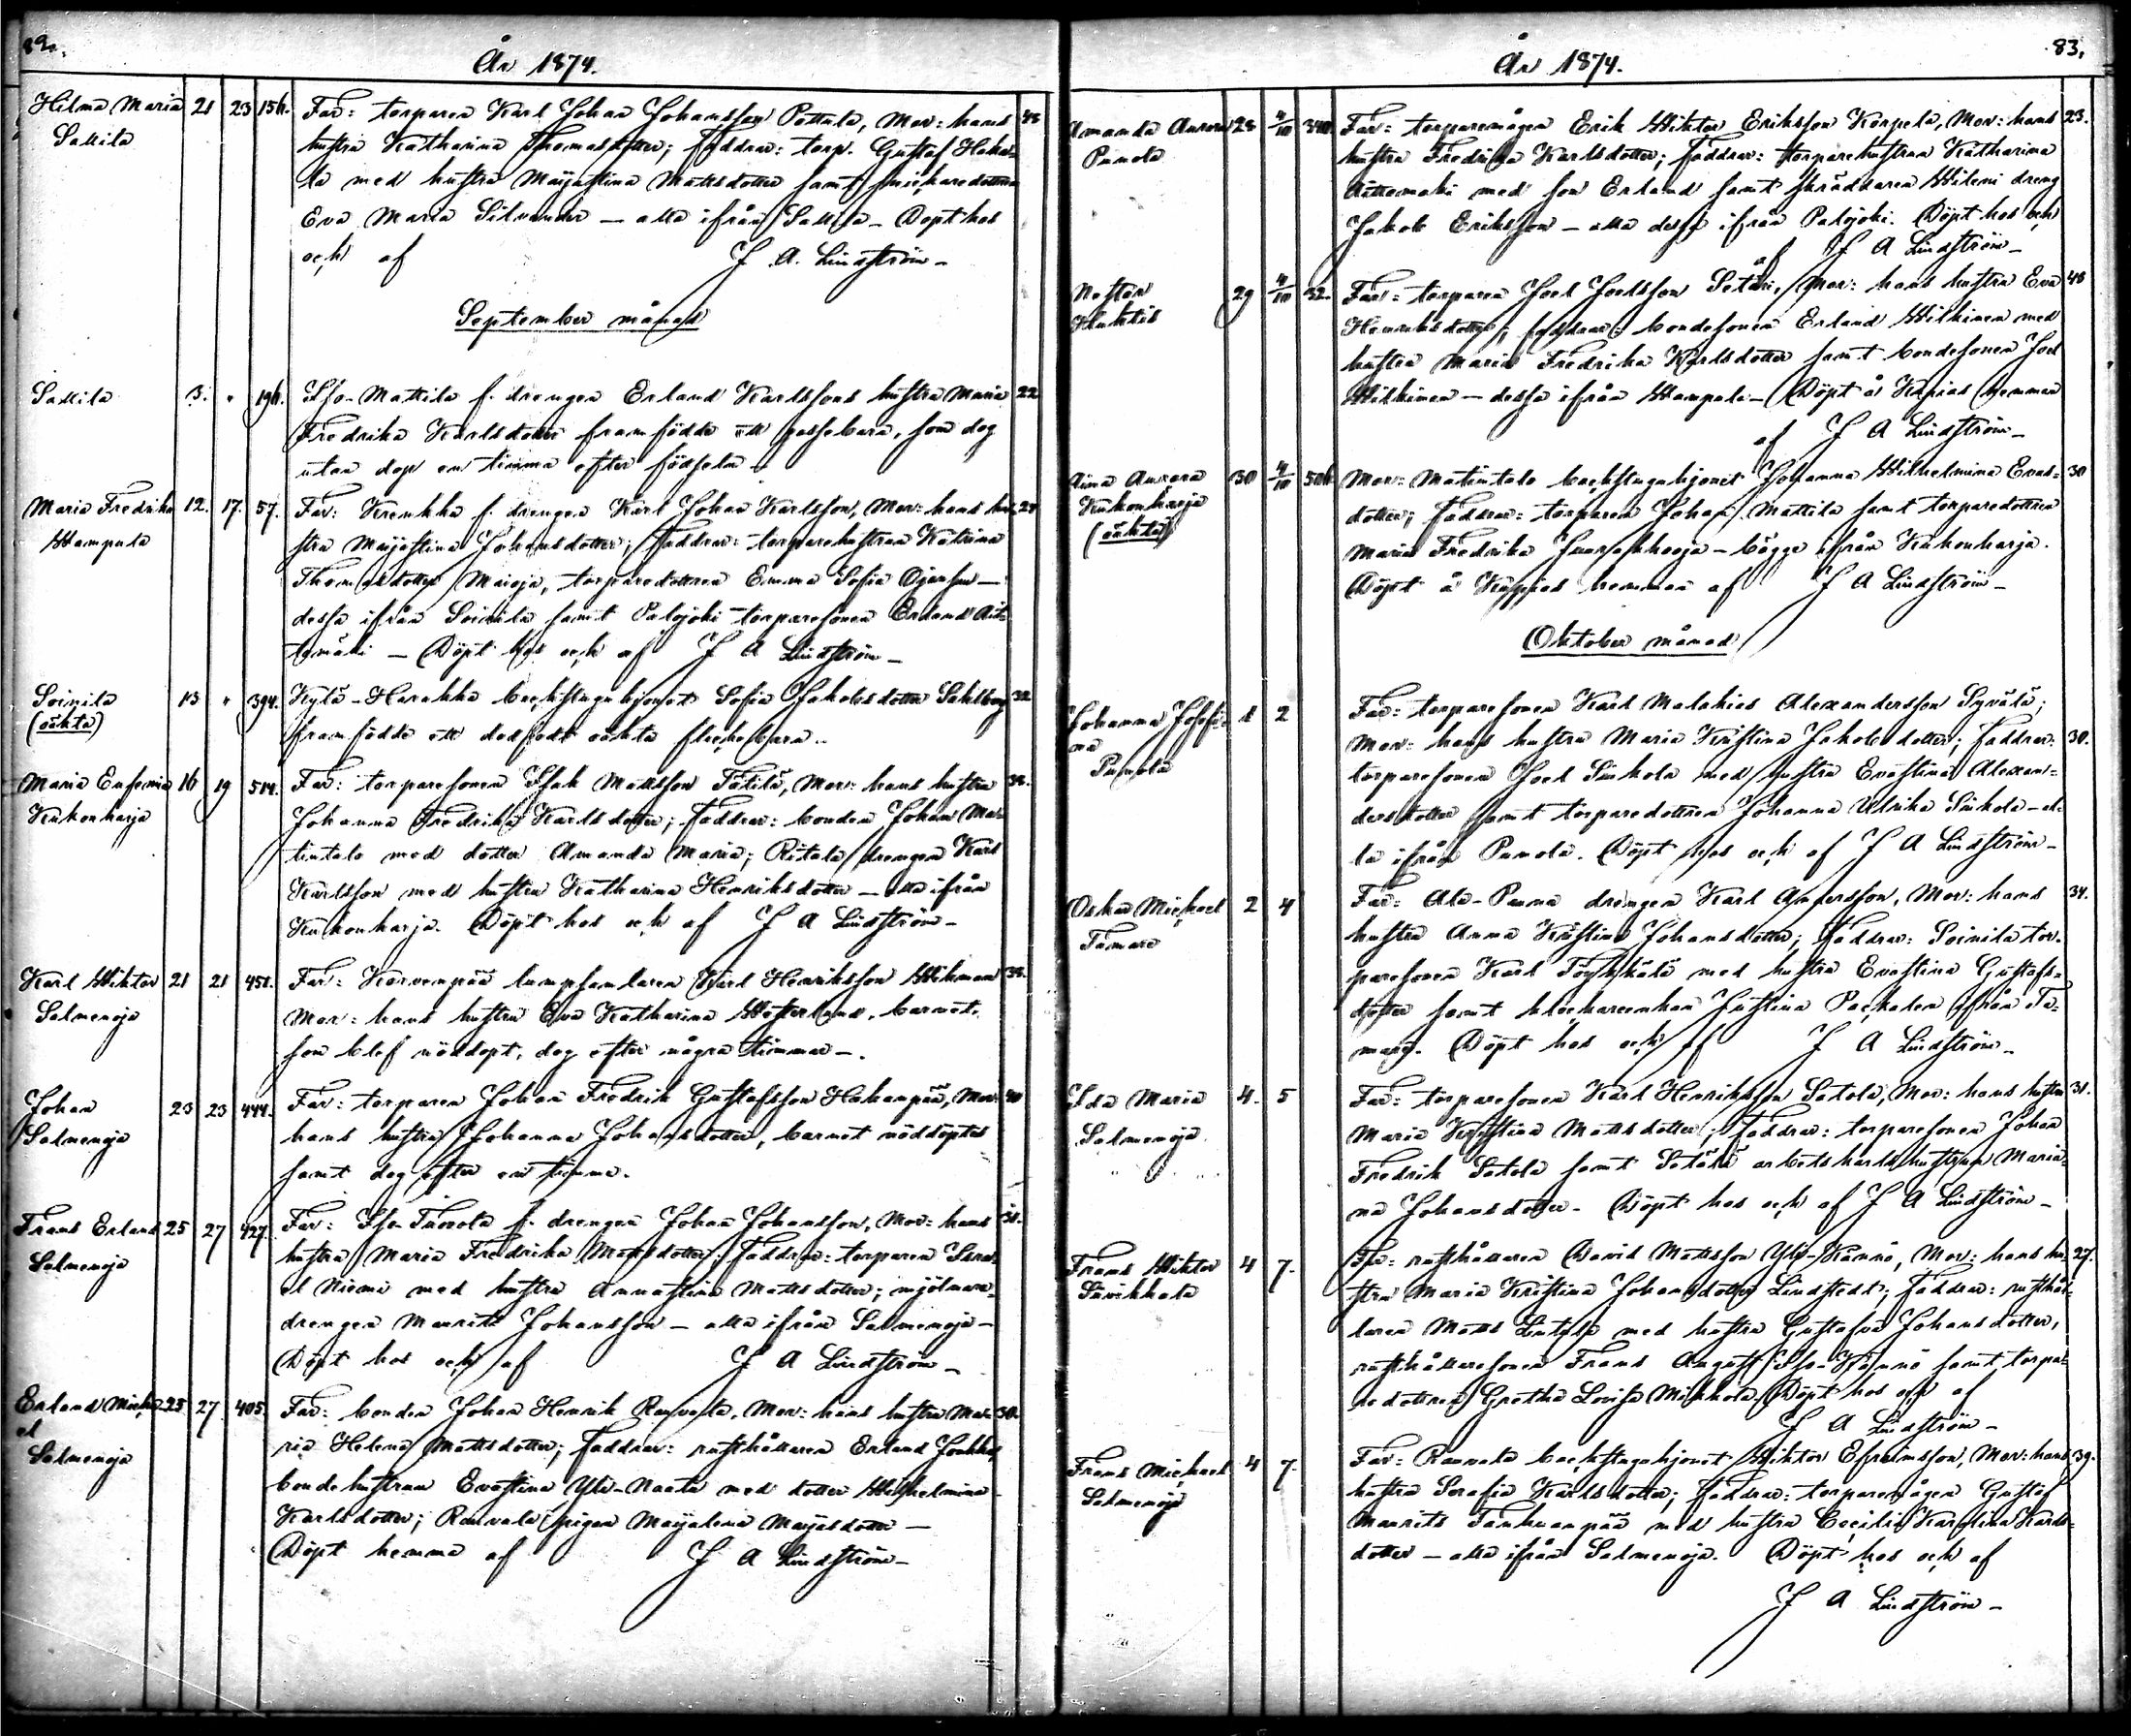 År 1874.
Hilma Maria 21 23 156. Far: torparen Karl Johan Johansson Pettala, Mor: hans 43
Sallila hustru Katharina Thomasdotter; Faddrar: torp. Gustaf Haka-
la med hustru Maijastina Mattsdotter samt
Eva Maria Silvander — alla ifrån Sallila — Döpt hos
och af J. A. Lindström —
September månad
Sallila 3. " 196. Iso-Mattila f. drengen Erland Karlssons hustru Maria 22
Fredrika Karlsdotter framfödde ett gossebarn, som dog
utan dop en timma efter födseln —
Maria Fredrika 12. 17. 57. Far: Krenkka f. drengen Karl Johan Karlsson, Mor: hans hu- 24
Wampula stru Maijastina Johansdotter; Faddrar: torparehustrun Katrina
Thomasdotter Maioja, torparedottren Emma Sofia Ojansuu —
dessa ifrån Soinila samt Palojoki torparesonen Erland Ait-
tomäki — Döpt hos och af J A Lindström —
Soinila 13 " 394. Kylä-Harakka backstuguhjonet Sofia Jakobsdotter Sahlberg 32
(oäkta) framfödde ett dödfödt oäkta flickebarn..
Maria Eufemia 16 19 514. Far: torparesonen Isak Mattsson Tätilä, Mor: hans hustru 32.
Kukonharja Johanna Fredrika Karlsdotter; Faddrar: bonden Johan Ma-
tintalo med dotter Amanda Maria; Ritala drengen Karl
Karlsson med hustru Katharina Henriksdotter — alla ifrån
Kukonharja. Döpt hos och af J A Lindström —
Karl Wiktor 21 21 451. Far: Korvenpää lumpsamlaren Karl Henriksson Wikman 39.
Salmenoja Mor: hans hustru Eva Katharina Westerlund, barnet,
som blef nöddöpt, dog efter några timmar —.
Johan 23 23 444. Far: torparen Johan Fredrik Gustafsson Hakanpää, Mor: 40
Salmenoja hans hustru Johanna Johansdotter, barnet nöddöptes
samt dog efter en timma.
Frans Erland 25 27 427. Far: Iso-Tuorola f. drengen Johan Johansson, Mor: hans 31.
Salmenoja hustru Maria Fredrika Mattsdotter; Faddrar: torparen Isra-
el Niemi med hustru Annastina Mattsdotter; mjölnare-
drengen Maurits Johansson — alla ifrån Salmenoja —
Döpt hos och af J A Lindström —
Erland Micha- 25 27 405. Far: bonden Johan Henrik Rauvala, Mor: hans hustru Ma- 30.
el ria Helena Mattsdotter; Faddrar: rusthållaren Erland Jonkka,
Salmenoja bondehustrun Evastina Yli-Naata med dotter Wilhelmina
Karlsdotter; Rauvala pigan Maijalena Maijasdotter —
Döpt hemma af J A Lindström —
83.
År 1874.
Amanda Aurora 28 4/10 340. Far: torparemågen Erik Wiktor Eriksson Korpela, Mor: hans 23.
Punola hustru Fredrika Karlsdotter; Faddrar: torparehustrun Katharina
Aittomäki med son Erland samt skräddaren Wileni dreng
Jakob Eriksson — alla dessa ifrån Palojoki. Döpt hos och
af J A Lindström —
Nestor 29 4/10 32. Far: torparen Joel Joelsson Setäri, Mor: hans hustru Eva 40
Huhtis Henriksdotter; faddrar: bondesonen Erland Wilkinen med
hustru Maria Fredrika Karlsdotter samt bondesonen Joel
Wilkinen — dessa ifrån Wampula — Döpt å Käpiäs hemman
af J A Lindström —
Aina Aurora 30 4/10 506. Mor: Matintalo backstuguhjonet Johanna Wilhelmina Evas- 30
Kukonharja dotter; Faddrar: torparen Johan Mattila samt torparedottren
(oäkta) Maria Fredrika — bägge ifrån Kukonharja.
Döpt å Käppiäs hemman af J A Lindström —
Oktober månad
Johanna Josefi- 1 2 Far: torparesonen Karl Malakias Alexandersson Syvälä;
na Mor: hans hustru Maria Kristina Jakobsdotter; Faddrar: 30.
Punola torparesonen Joel Sinkola med hustru Evastina Alexan-
dersdotter samt torparedottren Johanna Ulrika Sinkola — al-
la ifrån Punola. Döpt hos och af J A Lindström —
Oskar Michael 2 4 Far: Ala-Panna drengen Karl Andersson, Mor: hans 34.
Tamare hustru Anna Kristina Johansdotter; Faddrar: Soinila tor-
paresonen Karl Töykkälä med hustru Evastina Gustafs-
dotter samt klockareenkan Justina Packalen ifrån Ta-
mare. Döpt hos och af J A Lindström —
Ida Maria 4. 5 Far: torparesonen Karl Henriksson Satola, Mor: hans hustru 31.
Salmenoja Maria Kristina Mattsdotter; Faddrar: torparesonen Johan
Fredrik Satola samt Setälä arbetskarlshustrun Maria-
na Johansdotter. Döpt hos och af J A Lindström —
Frans Wiktor 4 7. Far: rusthållaren David Mattsson Yli-Kännö, Mor: hans hu- 27.
Särikkala stru Maria Kristina Johansdotter Lindstedt; Faddrar: rusthål-
laren Matts Lintula med hustru Gustafva Johansdotter,
rusthållaresonen Frans August Iso-Kännö samt torpa-
redottren Gretha Lovisa Mikkola. Döpt hos och af
J A Lindström —
Frans Michael 4 7. Far: Rauvala backstuguhjonet Wiktor Efraimsson, Mor: hans 39.
Salmenoja hustru Serafia Karlsdotter; Faddrar: torparemågen Gustaf
Maurits Tanhuanpää med hustru Cecilia Karolina Karls-
dotter — alla ifrån Salmenoja. Döpt hos och af
J A Lindström —